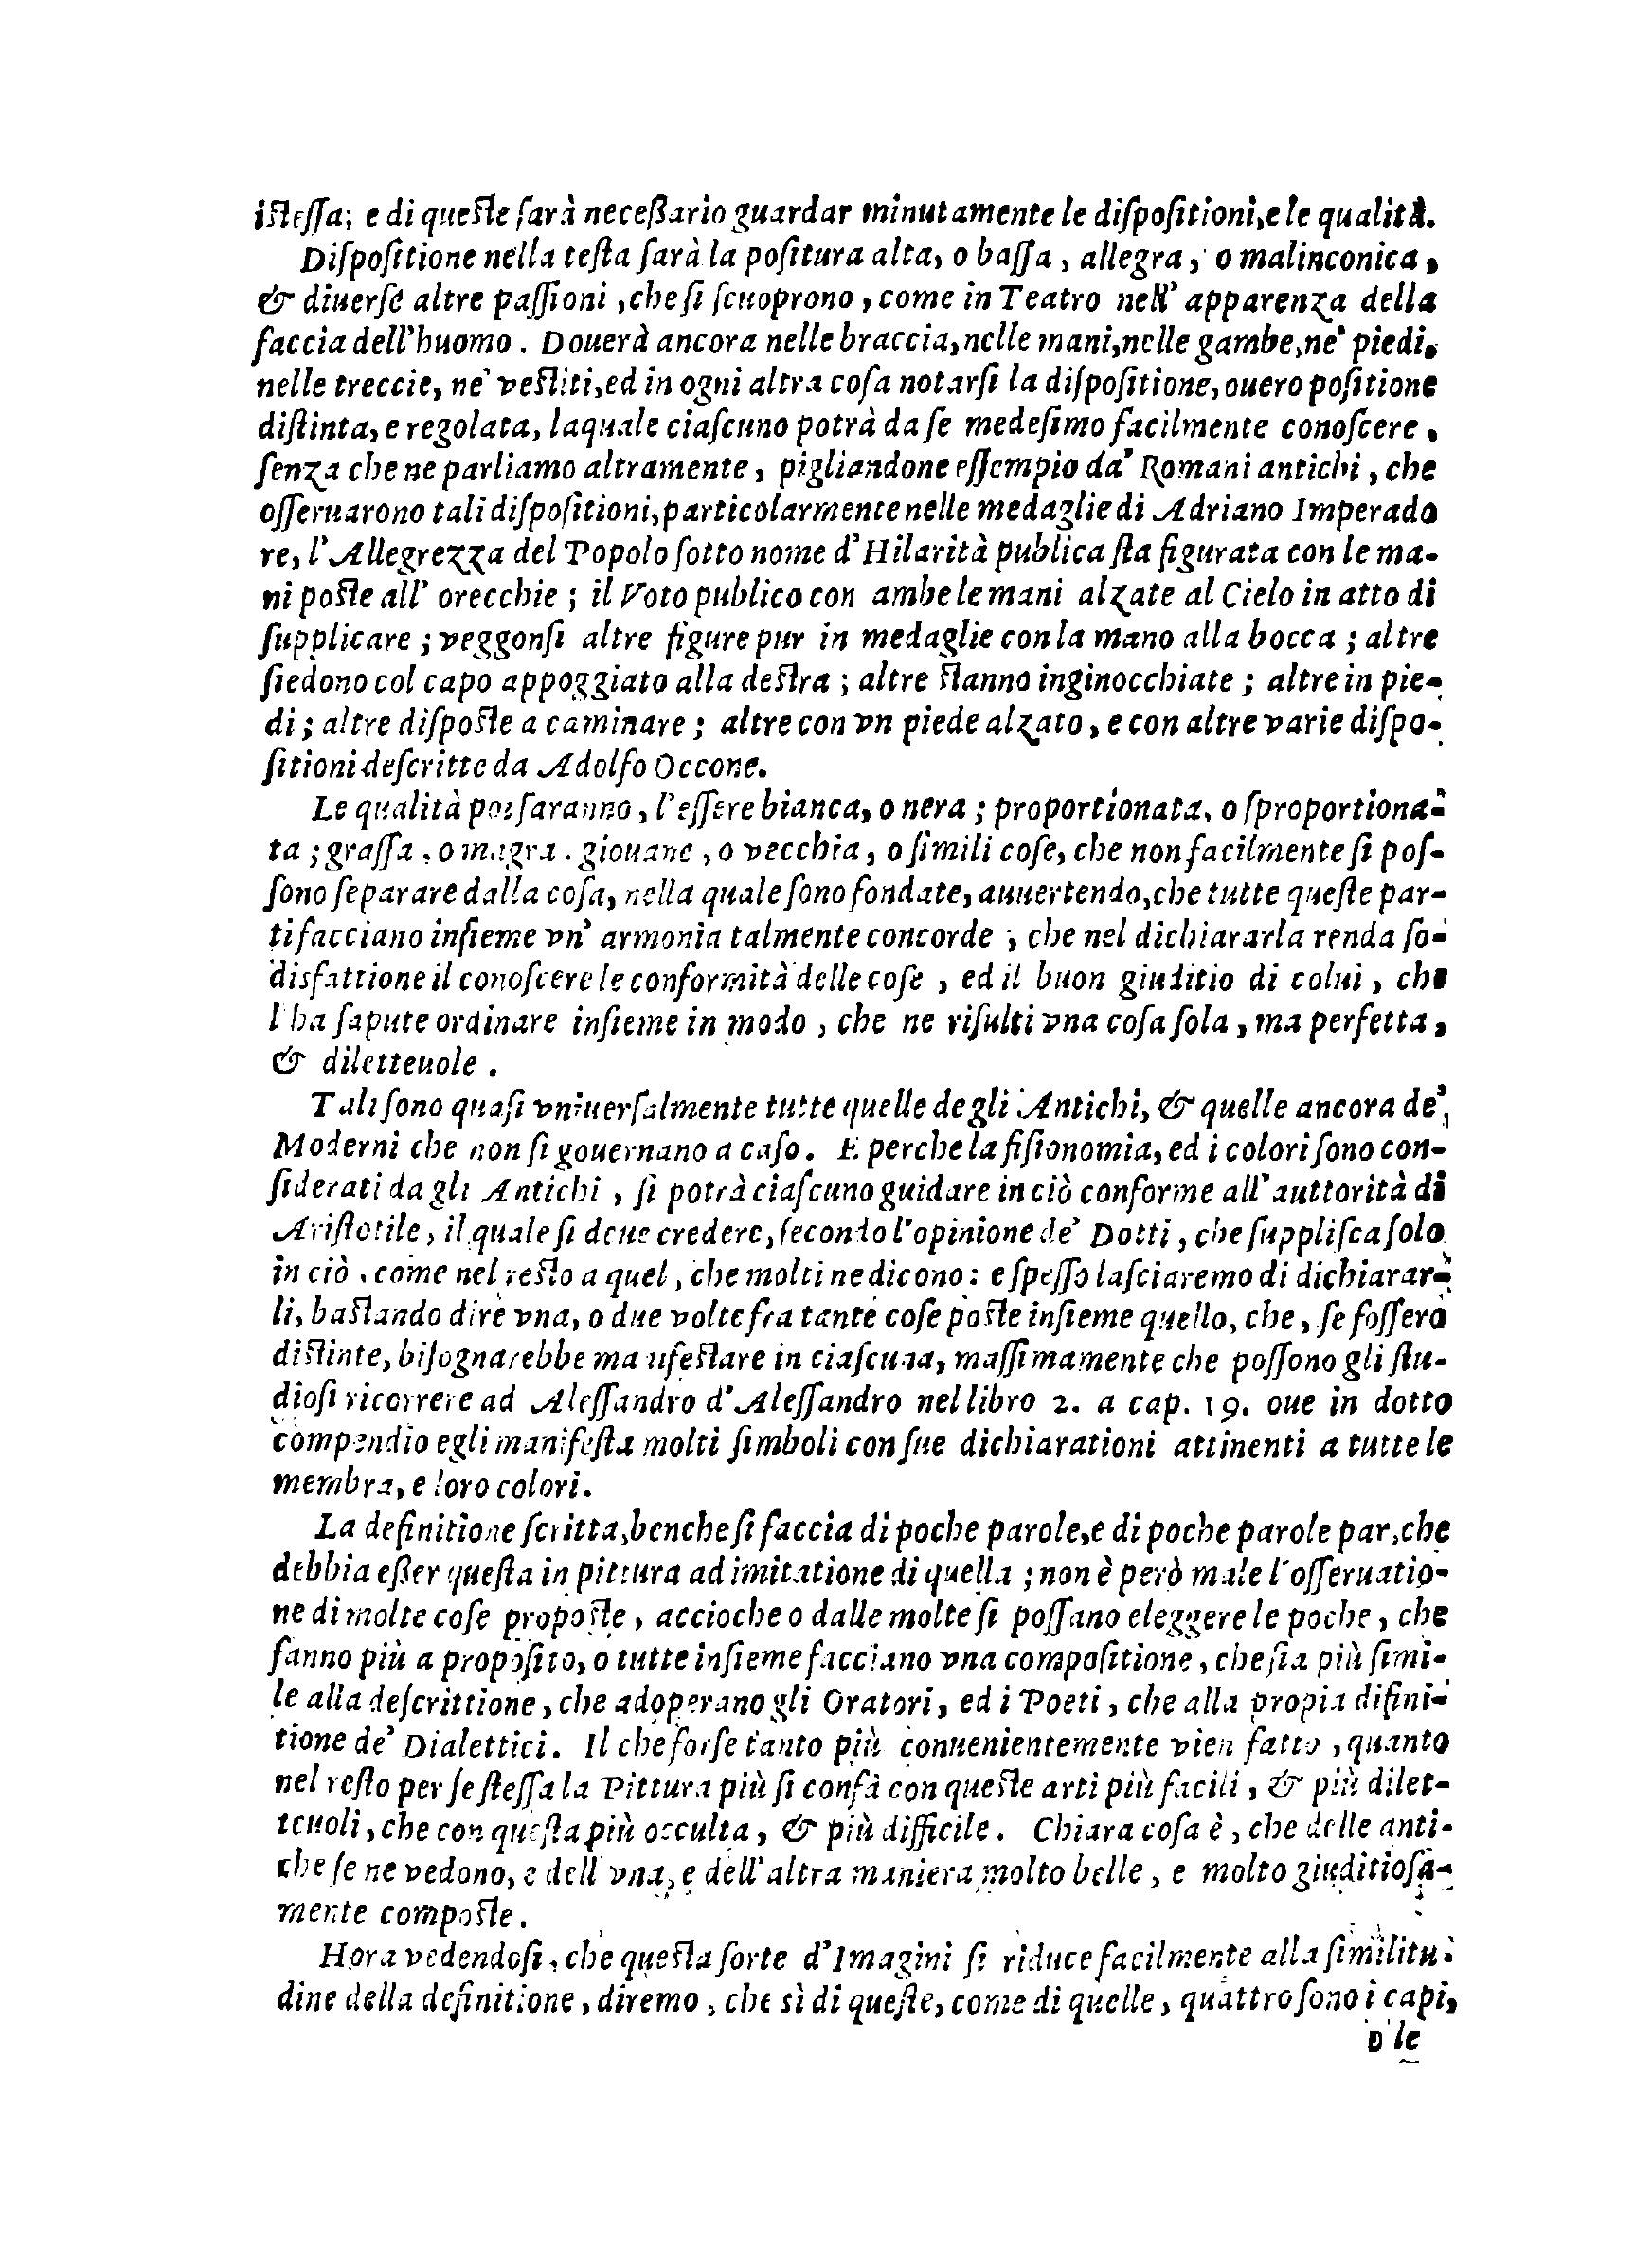 iſteſſa; e di queſte ſarà neceßario guardar minutamente le diſpoſitioni, e le qualità.
Diſpoſitione nella teſta ſarà la poſitura alta, o baſſa, allegra, o malinconica,
& diuerſe altre paſſioni, che ſi ſcuoprono, come in Teatro nell' apparenza della
faccia dell'huomo. Douerà ancora nelle braccia, nelle mani, nelle gambe, ne' piedi,
nelle treccie, ne' veſtiti, ed in ogni altra coſa notarſi la diſpoſitione, ouero poſitione
diſtinta, e regolata, laquale ciaſcuno potrà da ſe medeſimo facilmente conoſcere,
ſenza che ne parliamo altramente, pigliandone eſſempio da' Romani antichi, che
oſſeruarono tali diſpoſitioni, particolarmente nelle medaglie di Adriano Imperado
re, l'Allegrezza del Popolo ſotto nome d'Hilarità publica ſta figurata con le ma-
ni poſte all' orecchie; il Voto publico con ambe le mani alzate al Cielo in atto di
ſupplicare; veggonſi altre figure pur in medaglie con la mano alla bocca; altre
ſiedono col capo appoggiato alla deſtra; altre ſtanno inginocchiate; altre in pie-
di; altre diſpoſte a caminare; altre con vn piede alzato, e con altre varie diſpo-
ſitioni deſcritte da Adolfo Occone.
Le qualità poi ſaranno, l'eſſere bianca, o nera; proportionata, o ſproportiona-
ta; graſſa, o magra, giouane, o vecchia, o ſimili coſe, che non facilmente ſi poſ-
ſono ſeparare dalla coſa, nella quale ſono fondate, auuertendo, che tutte queſte par-
ti facciano inſieme vn' armonia talmente concorde, che nel dichiararla renda ſo-
disfattione il conoſcere le conformità delle coſe, ed il buon giuditio di colui, che
l'ha ſapute ordinare inſieme in modo, che ne riſulti vna coſa ſola, ma perfetta,
& diletteuole.
Tali ſono quaſi vniuerſalmente tutte quelle degli Antichi, & quelle ancora de'
Moderni che non ſi gouernano a caſo. E perche la fiſionomia, ed i colori ſono con-
ſiderati dagli Antichi, ſi potrà ciaſcuno guidare in ciò conforme all' auttorità di
Ariſtotile, il quale ſi deue credere, ſecondo l'opinione de' Dotti, che ſuppliſca ſolo
in ciò, come nel reſto a quel, che molti ne dicono: e ſpeſſo laſciaremo di dichiarar-
li, baſtando dire vna, o due volte fra tante coſe poſte inſieme quello, che, ſe foſſero
diſtinte, biſognarebbe manifeſtare in ciaſcuna, maſſimamente che poſſono gli ſtu-
dioſi ricorrere ad Aleſſandro d'Aleſſandro nel libro 2. a cap. 19. oue in dotto
compendio egli manifeſta molti ſimboli con ſue dichiarationi attinenti a tutte le
membra, e loro colori.
La definitione ſcritta, benche ſi faccia di poche parole, e di poche parole par, che
debbia eßer queſta in pittura ad imitatione di quella; non è però male l'oſſeruatio-
ne di molte coſe propoſte, accioche o dalle molte ſi poſſano eleggere le poche, che
fanno più a propoſito, o tutte inſieme facciano vna compoſitione, che ſia più ſimi-
le alla deſcrittione, che adoperano gli Oratori, ed i Poeti, che alla propia difini-
tione de' Dialettici. Il che forſe tanto più conuenientemente vien fatto, quanto
nel reſto per ſe ſteſſa la Pittura più ſi confà con queſte arti più facili, & più dilet-
teuoli, che con queſta più occulta, & più difficile. Chiara coſa è, che delle anti-
che ſe ne vedono, e dell vna, e dell'altra maniera molto belle, e molto giuditioſa-
mente compoſte.
Hora vedendoſi, che queſta ſorte d'Imagini ſi riduce facilmente alla ſimilitu-
dine della definitione, diremo, che sì di queſte, come di quelle, quattro ſono i capi,
o le